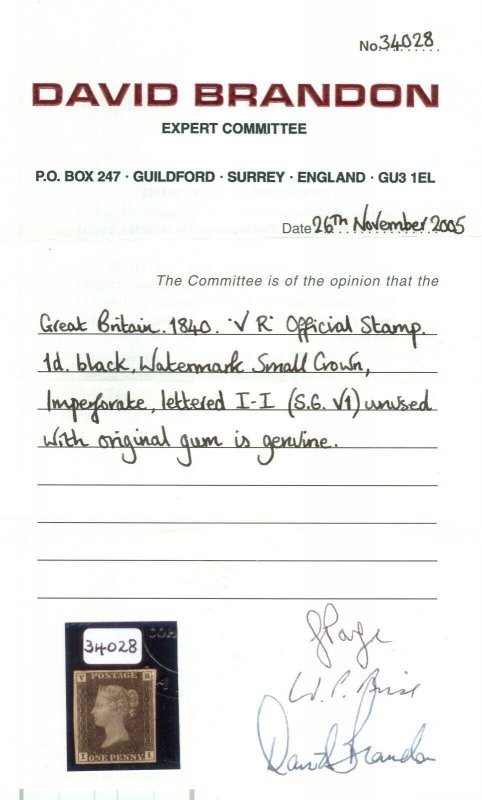 No. 34028
DAVID BRANDON
EXPERT COMMITTEE
P.O. BOX 247 · GUILDFORD · SURREY · ENGLAND · GU3 1EL
Date 26TH November 2005
The Committee is of the opinion that the
Great Britain. 1840. 'V R' Official Stamp.
1d. black, Watermark Small Crown,
Imperforate, lettered I-I (S.G. V1) unused
with original gum is genuine.
34028
V R
POSTAGE
I I
ONE PENNY
David Brandon